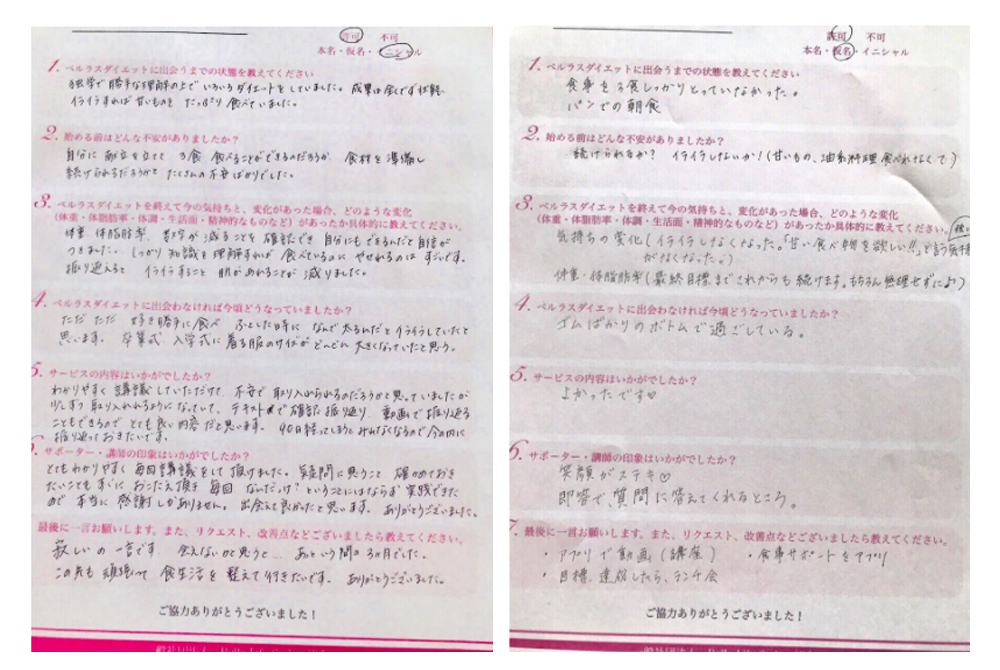 許可 不可
本名・仮名・イニシャル
1. ベルラスダイエットに出会うまでの状態を教えてください
独学で勝手な理解の上でいろいろダイエットをしていました。成果は出ず状態、
イライラすれば甘いものを たっぷり食べていました。
2. 始める前はどんな不安がありましたか?
自分に献立を立てて 3食 食べることができるのだろうか 食材を準備し
続けられるだろうかと たくさんの不安ばかりでした。
3. ベルラスダイエットを終えて今の気持ちと、変化があった場合、どのような変化
(体重・体脂肪率・体調・生活面・精神的なものなど)があったか具体的に教えてください。
体重、体脂肪率、数字が減ることを確認でき 自分にもできるんだと自信が
つきました。しっかり知識を理解すれば 食べているのに やせれるのは すごいです。
振り返ると イライラすること 肌があれることが 減りました。
4. ベルラスダイエットに出会わなければ今頃どうなっていましたか?
ただ ただ 好き勝手に食べ ふとした時に なんで太るんだとイライラしていたと
思います。卒業式 入学式に着る服のサイズがどんどん大きくなっていたと思う。
5. サービスの内容はいかがでしたか?
わかりやすく講義していただけて、不安で取り入れられるのだろうかと思っていましたが
少しずつ取り入れれるようになっていて、テキストで確認、振り返り、動画で振り返る
こともできるので とても良い内容だと思います。90日経ってしまうとみれなくなるので今の内に
振り返っておきたいです。
6. サポーター・講師の印象はいかがでしたか?
とてもわかりやすく 毎回講義をして頂けました。疑問に思うこと 確かめておき
たいことも すぐに おこたえ頂き 毎回 なんだっけ?ということにはならず 実践できた
ので 本当に 感謝しかありません。出会えて良かったと思います。ありがとうございました。
最後に一言お願いします。また、リクエスト、改善点などございましたら教えてください。
寂しいの一言です 会えないのと思うと… あっという間の3ヵ月でした。
この先も 頑張って 食生活を 整えて行きたいです。ありがとうございました。
ご協力ありがとうございました!
許可 不可
本名・仮名・イニシャル
1. ベルラスダイエットに出会うまでの状態を教えてください
食事を3食しっかりとっていなかった。
パンでの朝食
2. 始める前はどんな不安がありましたか?
続けられるか? イライラしないか!(甘いもの、油系料理 食べれなくて)
3. ベルラスダイエットを終えて今の気持ちと、変化があった場合、どのような変化
(体重・体脂肪率・体調・生活面・精神的なものなど)があったか具体的に教えてください。
気持ちの変化(イライラしなくなった。「甘い食べ物を欲しい!!」と言う気持
がなくなった。)
体重・体脂肪率(最終目標までこれからも続けます。もちろん無理せずに♪)
4. ベルラスダイエットに出会わなければ今頃どうなっていましたか?
ゴムばかりのボトムで過ごしている。
5. サービスの内容はいかがでしたか?
よかったです♡
6. サポーター・講師の印象はいかがでしたか?
笑顔がステキ♡
即答で、質問に答えてくれるところ。
7. 最後に一言お願いします。また、リクエスト、改善点などございましたら教えてください。
・アプリで動画(講座) ・食事サポートをアプリ
・目標、達成したら、ランチ会
ご協力ありがとうございました!